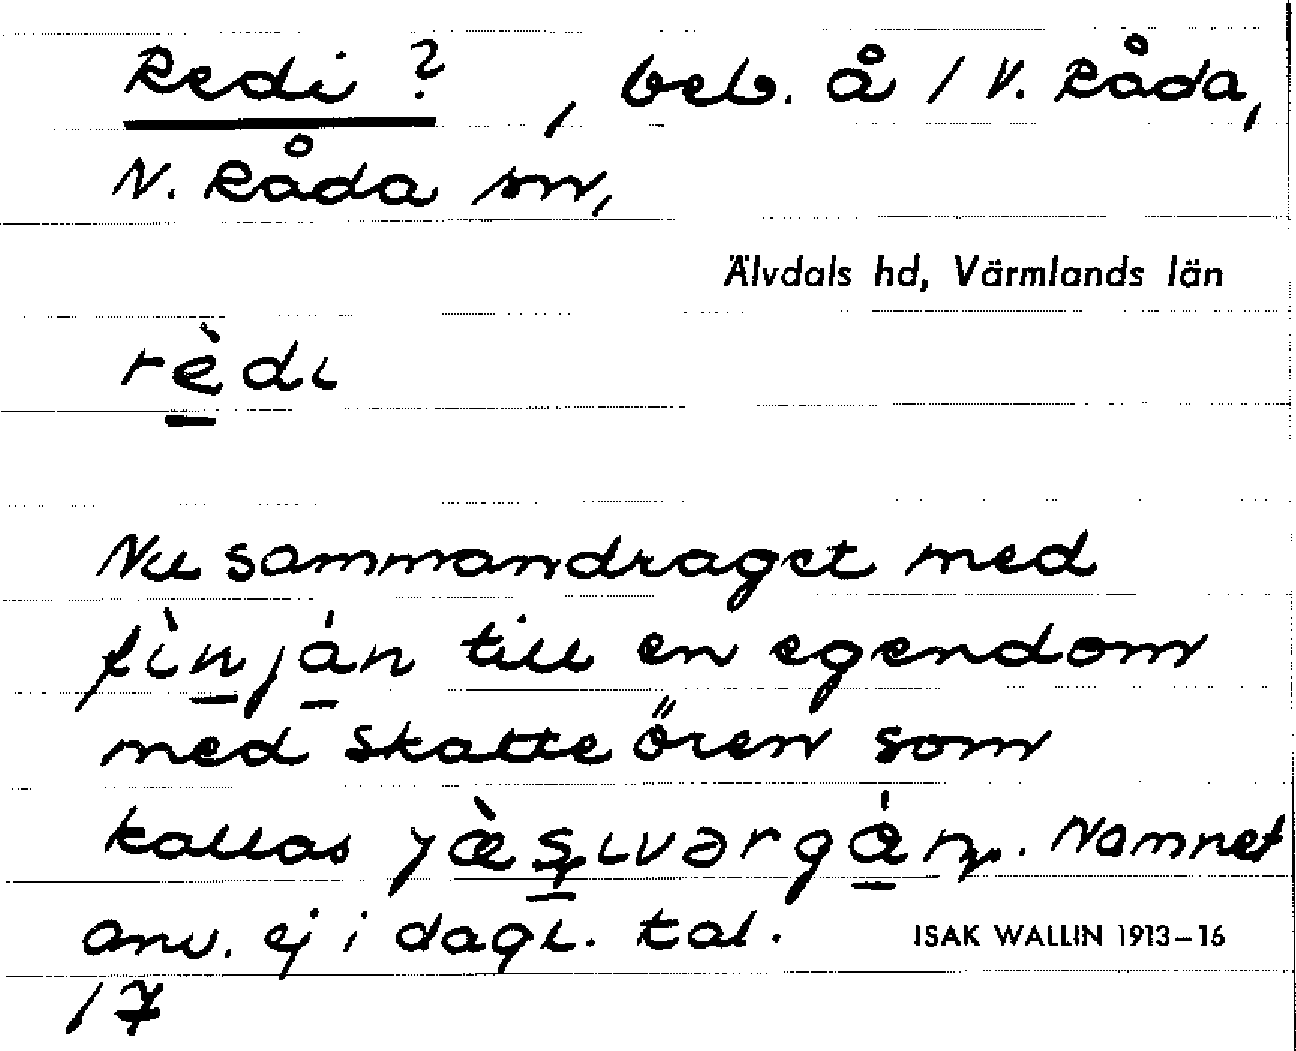 Redi ?, beb. å 1 V. Råda,
N. Råda sn,
Älvdals hd, Värmlands län
rèdi
Nu sammandraget med
fìnján till en egendom
med skatteören som
kallas Namnet
anv. ej i dagl. tal.
ISAK WALLIN 1913–16
17